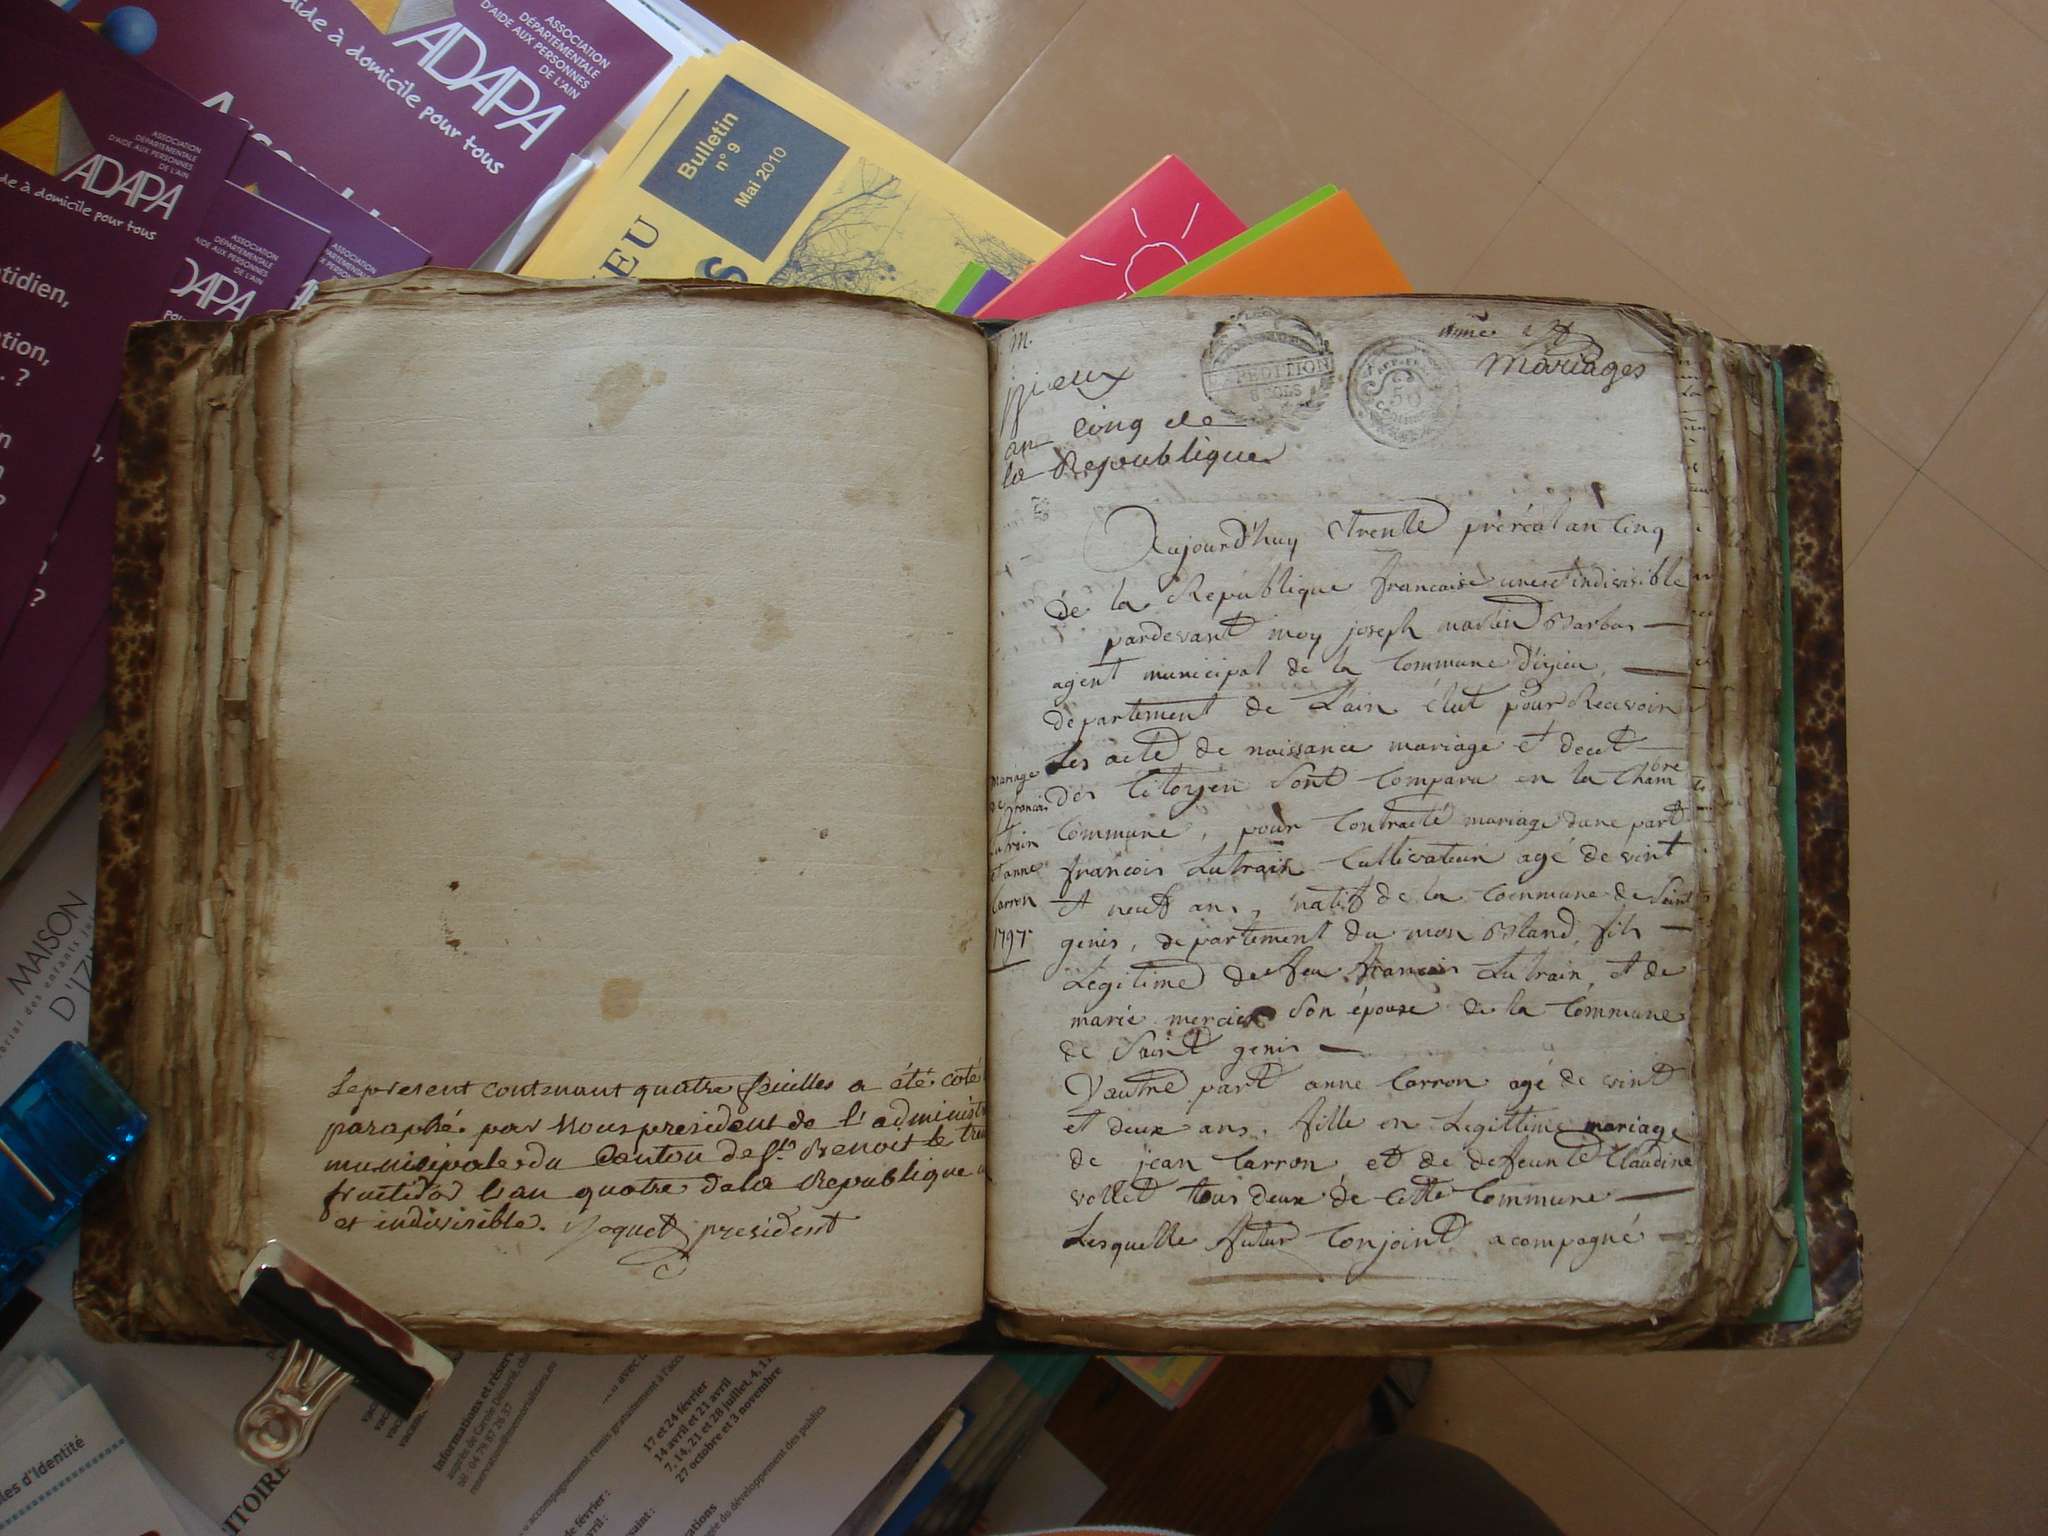 ASSOCIATION
DÉPARTEMENTALE
D'AIDE AUX PERSONNES
DE L'AIN
ADAPA
ide à domicile pour tous
ASSOCIATION
DÉPARTEMENTALE
D'AIDE AUX PERSONNES
DE L'AIN
ADAPA
de à domicile pour tous
ASSOCIATION
DÉPARTEMENTALE
D'AIDE AUX PERSONNES
DE L'AIN
DAPA
tidien,
tion,
. ?
Bulletin
n° 9
Mai 2010
IEU
S
Le present contenant quatre feuilles a été coté
paraphé par nous president de l'administ
municipale du Canton de St. Benoit le tren
fructidor l'an quatre de la Republique u
et indivisible. president
m.
jzieux
an Cinq de
la Republique
EXPEDITION
50
année
mariages
Aujourd'huy trente preréal an Cinq
de la Republique francaise une et indivisible
pardevant moy joseph martin Barbas
agent municipal de la Commune d'izieu
departement de L'ain élut pour Recevoir
Les acte de naissance mariage et decet
des Citoyen Sont Comparu en la Chambre
Commune, pour Contracté mariage dune part
françois Lutrain Cultivateur agé de vint
et neuf ans, natif de la Commune de Saint
genis, departement du mon Bland, fils
Légitime de feu françois Lutrain, et de
marie mercier Son épouse de la Commune
de Saint genis
D'autre part anne Carron agé de vint
et deux ans, fille en Legittime mariage
de jean Carron et de defeunte Claudine
vollet tous deux de Cette Commune
Lesquelle futur Conjoint acompagné
mariage
de francois
Lutrain
et anne
Carron
1797
MAISON
D'IZI
Informations et réserv
tél : 04 79 87 26 37
17 et 24 février
14 avril et 21 avril
7, 14, 21 et 28 juillet, 4, 1
27 octobre et 3 novembre
accompagnement remis gratuitement à l'acc
de février :
ge du développement des publics
es d'Identité
ITOIRE